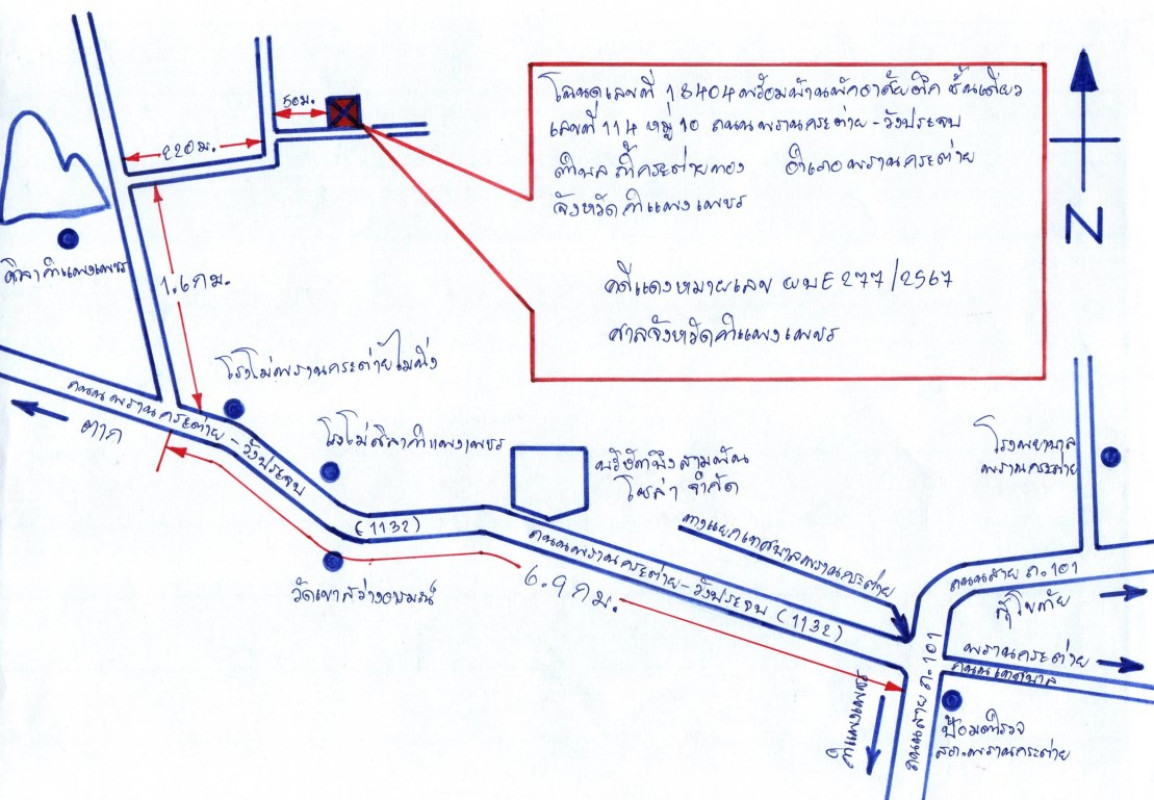 โฉนดเลขที่ 18404 พร้อมบ้านพักอาศัยตึก ชั้นเดียว
เลขที่ 114 หมู่ 10 ถนนพรานกระต่าย-วังประจบ
ตำบล ถ้ำกระต่ายทอง อำเภอพรานกระต่าย
จังหวัดกำแพงเพชร
คดีแดงหมายเลข ผบE277/2567
ศาลจังหวัดกำแพงเพชร
N
50ม.
220ม.
1.6กม.
ศิลากำแพงเพชร
โรงโม่พรานกระต่ายไมนิ่ง
โรงโม่ศิลากำแพงเพชร
ถนนพรานกระต่าย-วังประจบ
ตาก
(1132)
บริษัทบึงสามพัน
โซล่า จำกัด
ถนนพรานกระต่าย-วังประจบ (1132)
6.9กม.
วัดเขาสว่างอารมณ์
ทางแยกเทศบาลพรานกระต่าย
โรงพยาบาล
พรานกระต่าย
ถนนสาย ถ.101
สุโขทัย
พรานกระต่าย
ถนนเทศบาล
ถนนสาย ถ.101
กำแพงเพชร
ป้อมตำรวจ
สภ.พรานกระต่าย